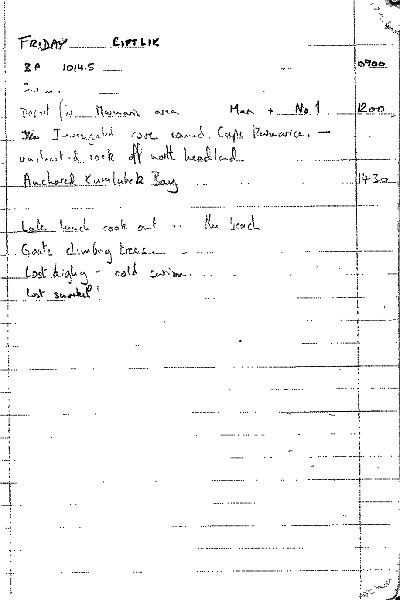 FRIDAY CIFTLIK
BP 1014.5 0900
Depart for Marmaris area Main + No.1 1200
Investigated cove round
uncharted rock off north headland
Anchored Kumlubuk Bay 1430
Late lunch cook out on the beach
Goats climbing trees
Lost dighy - cold swim.
Lost snorkel!